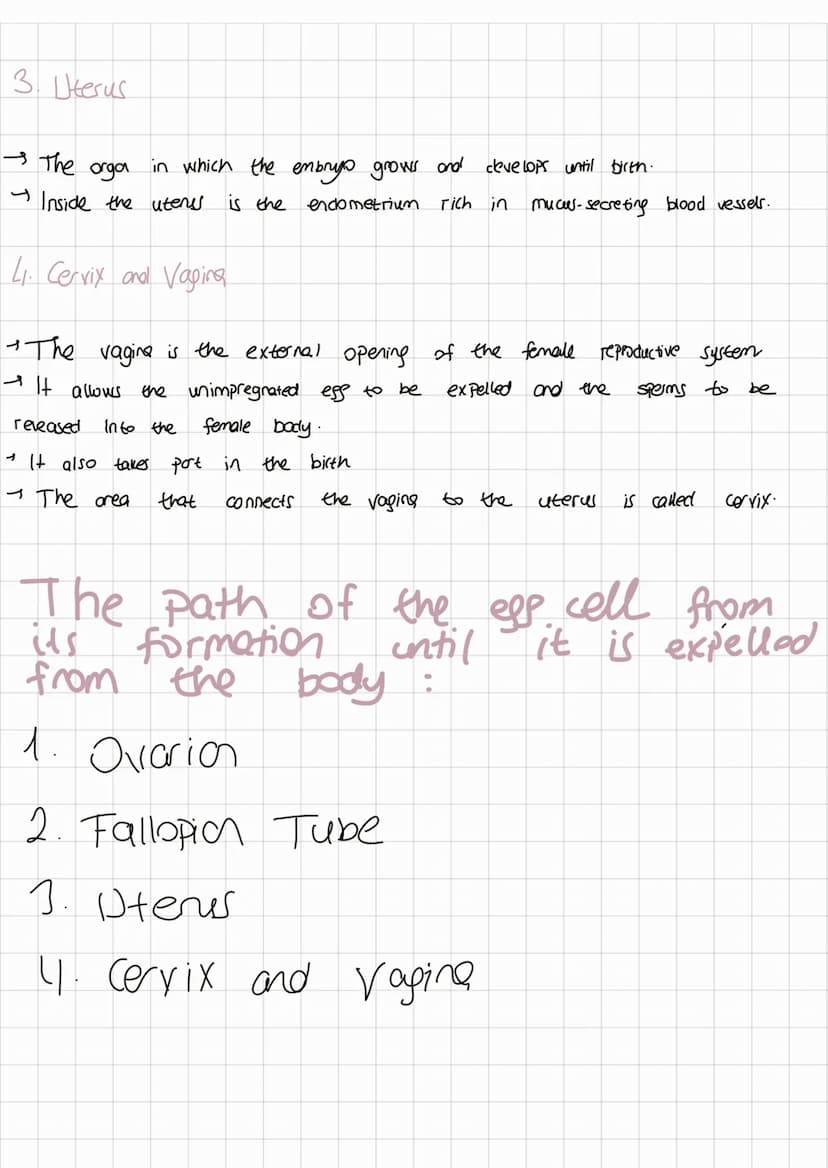 3. Uterus
→ The organ in which the embryo grows and develops until birth.
→ Inside the uterus is the endometrium rich in mucus-secreting blood vessels.
4. Cervix and Vagina
→ The vagina is the external opening of the female reproductive system
→ It allows the unimpregnated egg to be expelled and the sperms to be
released into the female body.
→ It also takes part in the birth
→ The area that connects the vagina to the uterus is called cervix.
The path of the egg cell from
its formation until it is expelled
from the body :
1. Ovarian
2. Fallopian Tube
3. Uterus
4. Cervix and Vagina